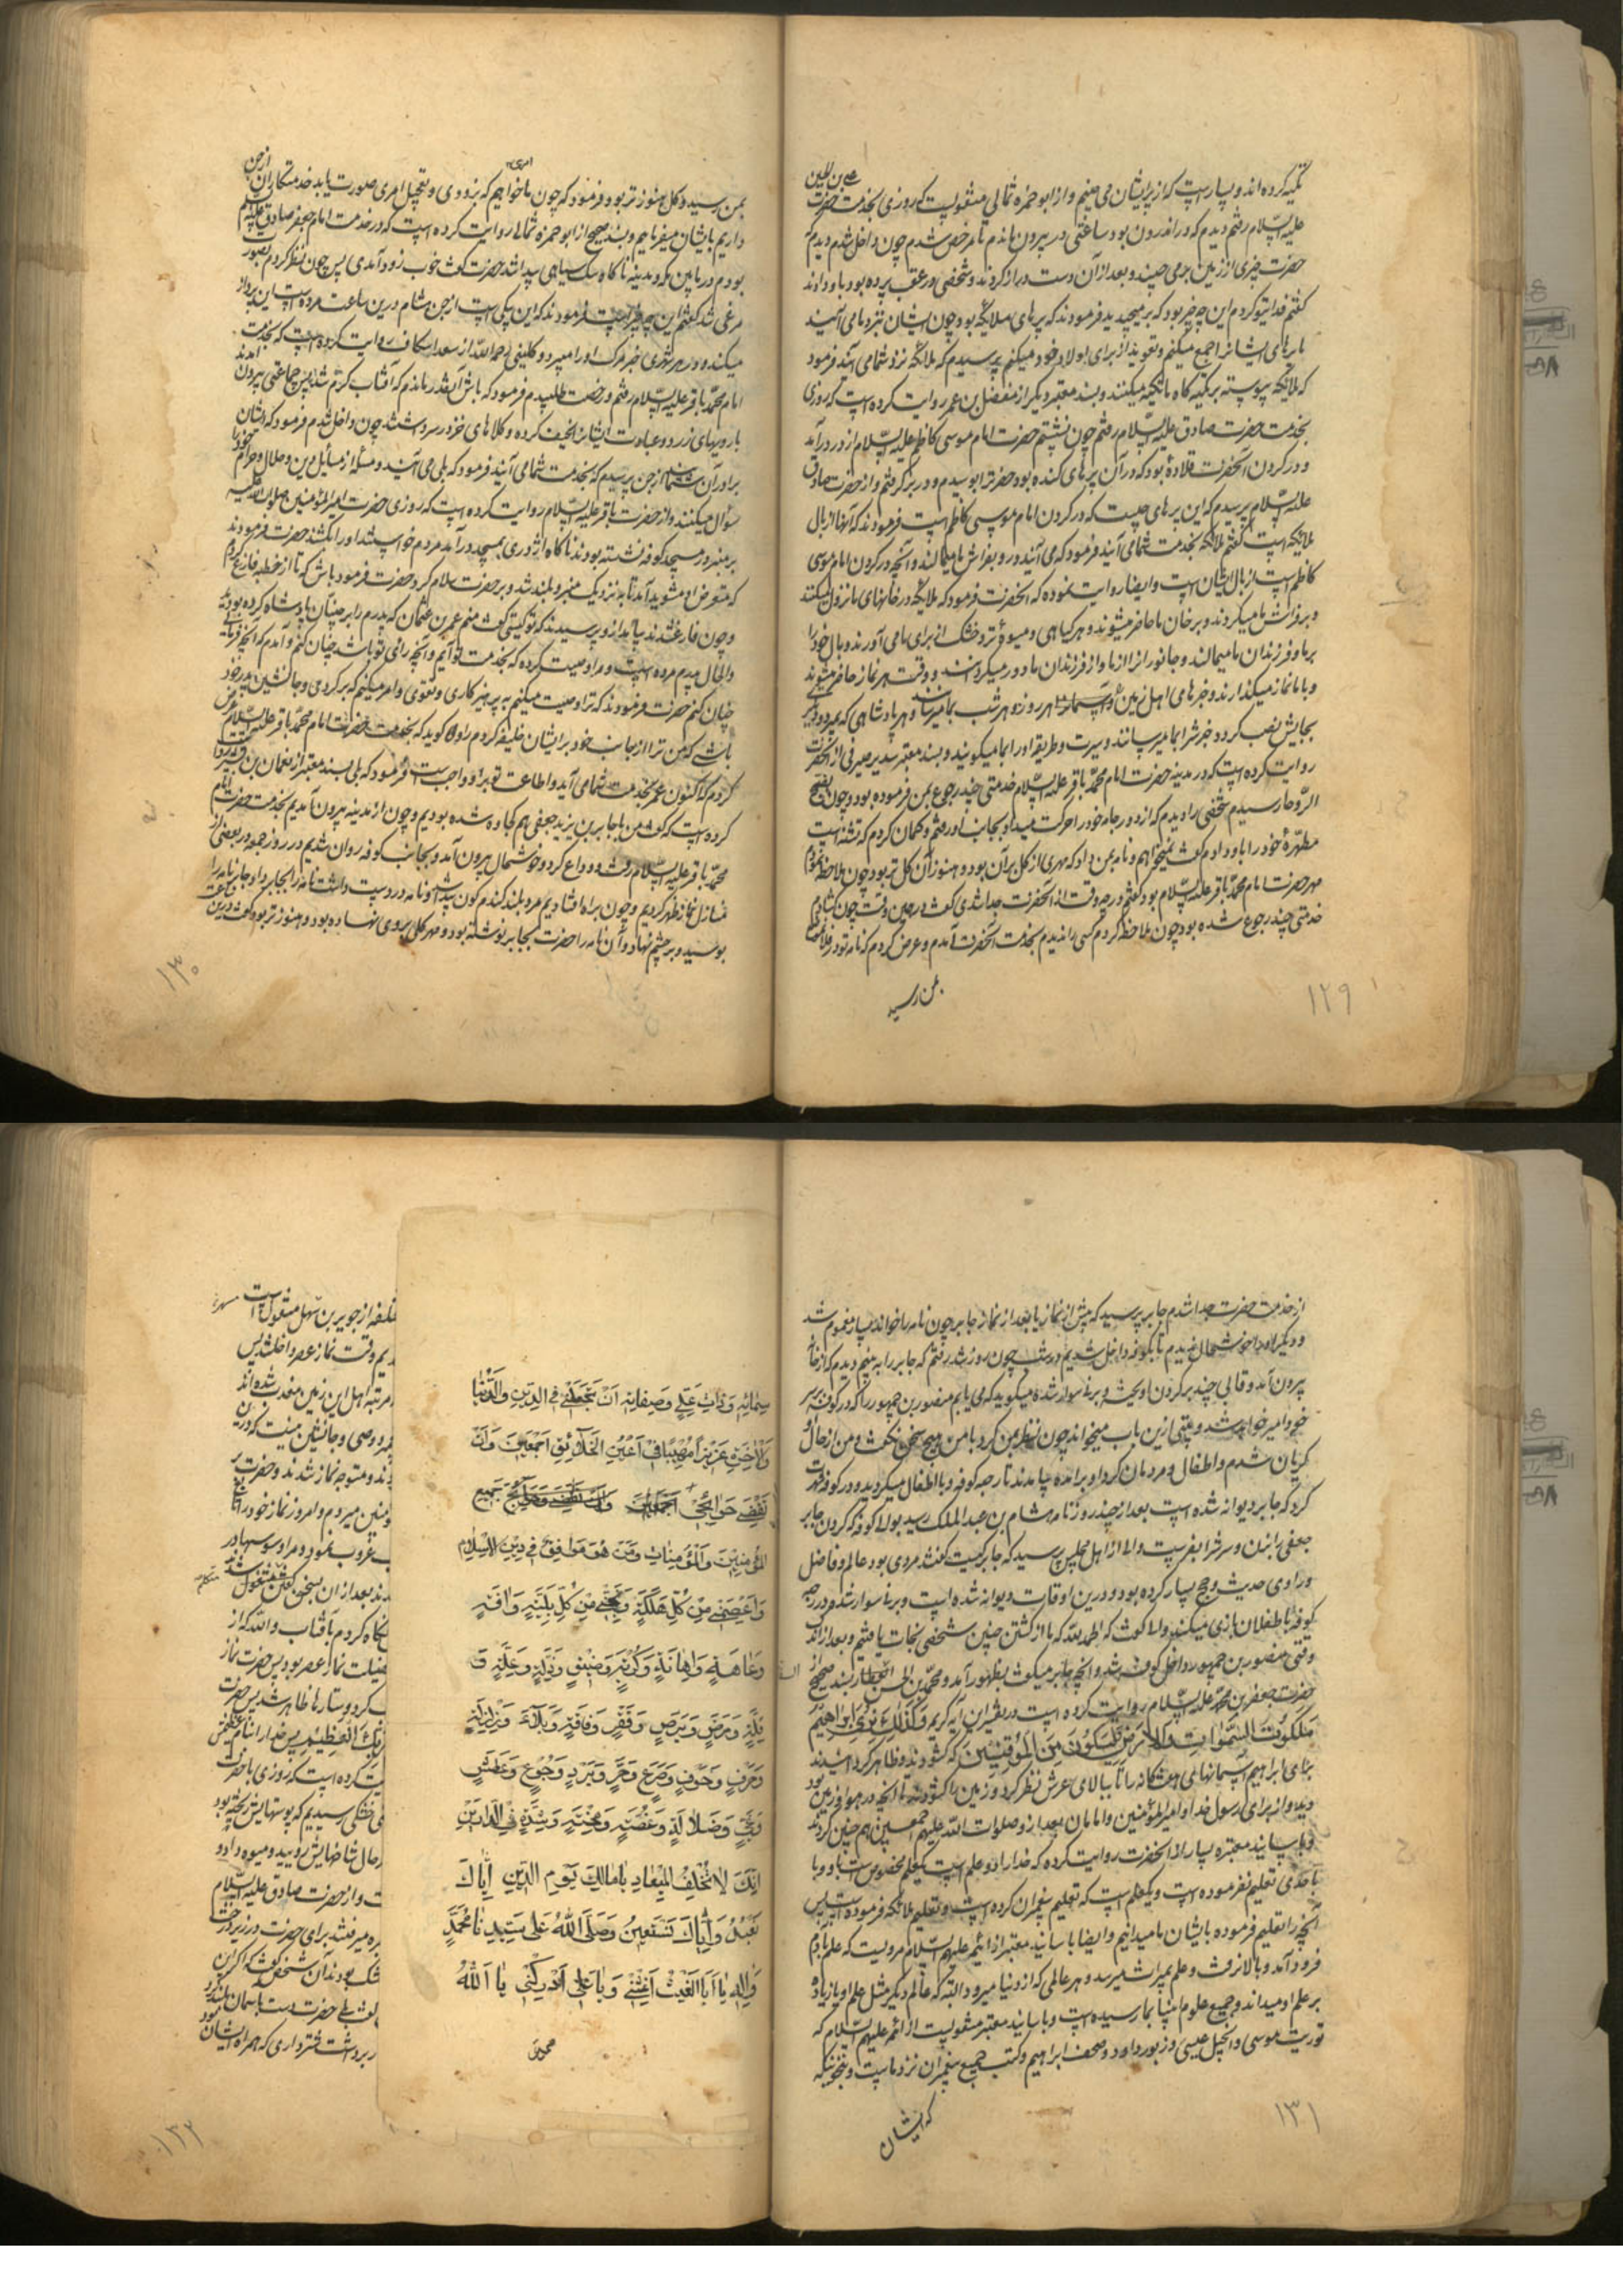 تکیه کرده اند و بسیارست که از پر ایشان می چینم و از ابو حمزه ثمالی منقولست که روزی بخدمت حضرت علی بن الحسین
علیه السلام رفتم دیدم که در اندرون بود ساعتی در بیرون ماندم تا مرخص شدم چون داخل شدم دیدم که
حضرت چیزی از زمین برمی چیند و بعد از آن دست دراز کردند و شخصی در عقب پرده بود باو دادند
گفتم فدایتو کردم این چه چیز بود که بر میچیدید فرمودند که پرهای ملائکه بود چون ایشان نزد ما می آیند
ما پرهای ایشانرا جمع میکنم و تعویذ از برای اولاد خود میکنم پرسیدم که ملائکه نزد شما می آیند فرمود
که ملائکه پیوسته بر تکیه گاه ما تکیه میکنند و بسند معتبر دیگر از مفضل بن عمر روایت کرده است که روزی
بخدمت حضرت صادق علیه السلام رفتم چون نشستم حضرت امام موسی کاظم علیه السلام از در درآمد
و در کردن آنحضرت قلادهٔ بود که در آن پرهای کنده بود حضرترا بوسیدم و در بر گرفتم و از حضرت صادق
علیه السلام پرسیدم که این پرهای چیست که در کردن امام موسی کاظم است فرمودند که آنها از بال
ملائکه است گفتم ملائکه بخدمت شما می آیند فرمود که می آیند و رو بفراش ما میمالند و آنچه در کردن امام موسی
کاظم است از بال ایشان است و ایضا روایت نموده که آنحضرت فرمود که ملائکه در خانهای ما نزول میکنند
و بر فراش ما میکردند و بر خان ما حاضر میشوند و هر کیاهی و میوهٔ تر و خشک از برای ما می آورند و بال خود را
بر ما و فرزندان ما میمالند و جانورانرا از ما و از فرزندان ما دور میکردانند و وقت هر نماز حاضر میشوند
و با ما نماز میکذارند و خبرهای اهل زمین و آسمانرا هر روز و هر شب بما میرسانند و هر پادشاهی که بمیرد و دیگری
بجایش نصب کردد خبرشرا بما میرسانند و سیرت و طریقه او را بما میکویند و بسند معتبر سدیر صیرفی از آنحضرت
روایت کرده است که در مدینه حضرت امام محمد باقر علیه السلام خدمتی چند رجوع بمن فرموده بود و چون بفج
الروحا رسیدم شخصی را دیدم که از دور جامه خود را حرکت میداد بجانب او رفتم و کمان کردم که تشنه است
مطهرهٔ خود را باو دادم گفت نمیخواهم و نامه بمن داد که مهری از کل بر آن بود و هنوز آن کل تر بود چون ملاحظه نمودم
مهر حضرت امام محمد باقر علیه السلام بود گفتم در چه وقت از آنحضرت جدا شدی گفت در همین وقت چون کشادم
خدمتی چند رجوع شده بود چون ملاحظه کردم کسی را ندیدم بخدمت آنحضرت آمدم و عرض کردم که نامه تو در فلان
بمن رسید
۱۲۹
امری
بمن رسید و کل هنوز تر بود فرمود که چون ما خواهیم که بزودی و تعجیل امری صورت یابد خدمتکاران از جن
داریم بایشان میفرماییم و بسند صحیح از ابو حمزه ثمالی روایت کرده است که در خدمت امام جعفر صادق علیه السلام
بودم در مابین مکه و مدینه ناکاه سک سیاهی پیدا شد حضرت گفت خوب زود آمدی پس چون نظر کردم بصورت
مرغی شد گفتم این چه چیز است فرمودند که این پیکی است از جن هشام درین ساعت مرده است این پرواز
میکند و در هر شهری خبر مرک او را میبرد و کلینی رحمه الله از سعد اسکاف روایت کرده است که بخدمت
امام محمد باقر علیه السلام رفتم و رخصت طلبیدم فرمود که باش آنقدر ماندم که آفتاب کرم شد پس جماعتی بیرون آمدند
با رویهای زرد و عبادت ایشانرا نحیف کرده و کلاهای خز در سر داشتند چون داخل شدم فرمود که ایشان
برادران شمااند از جن پرسیدم که بخدمت شما می آیند فرمود که بلی می آیند و مسؤل از مسایل دین و حلال و حرام خود را
سؤال میکنند و از حضرت باقر علیه السلام روایت کرده است که روزی حضرت امیر المؤمنین صلوات الله علیه
بر منبر در مسجد کوفه نشسته بودند ناکاه اژدری بمسجد درآمد مردم خواستند او را بکشند حضرت فرمودند
که متعرض او مشوید آمد تا بنزدیک منبر و بلند شد و بر حضرت سلام کرد حضرت فرمود باش که تا از خطبه فارغ کردم
و چون فارغ شدند پیاید از و پرسیدند که تو کیستی گفت منم عمر بن عثمان که پدرم را بر جنیان پادشاه کرده بودید
و الحال پدرم مرده است و مرا وصیت کرده که بخدمت تو آیم و آنچه رای تو باشد چنان کنم و آمدم که آنچه فرمایی
چنان کنم حضرت فرمودند که ترا وصیت میکنم به پرهیزکاری و تقوی و امر میکنم که برکردی و جانشین پدر خود
باشی که من ترا از جانب خود بر ایشان خلیفه کردم راوی کوید که بخدمت حضرت امام محمد باقر علیه السلام عرض
کردم که اکنون عمر بخدمت شما می آید و اطاعت تو براو واجبست فرمود که بلی بسند معتبر از نعمان بن بشیر روایت
کرده است که گفت من با جابر بن یزید جعفی هم کجاوه شده بودیم و چون از مدینه بیرون آمدیم بخدمت حضرت امام
محمد باقر علیه السلام رفت و وداع کرد و خوشحال بیرون آمد و بجانب کوفه روان شدیم در روز جمعه در بعضی از
منازل نماز ظهر کردیم و چون براه افتادیم مرد بلند کندم کون پیدا شد و نامه در دست داشت نامه را بجابر داد و جابر نامه را
بوسید و بر چشم نهاد و آن نامه را حضرت بجابر نوشته بود و مهر کلی بروی نهاده بود و هنوز تر بود گفت درین ساعت
۱۳۰
از خدمت حضرت جدا شدم جابر پرسید که پیش از نماز یا بعد از نماز جابر چون نامه را خواند بسیار مغموم شد
و دیگر او را خوشحال ندیدم تا بکوفه داخل شدیم در شب چون روز شد رفتم که جابر را به بینم دیدم که از خانه
بیرون آمد و قالی چند بر کردن آویخت و برنی سوار شده میکوید که می یابم منصور بن جمهور را که در کوفه بر سر
خود امیر خواهد شد و بیتی ازین باب میخواند چون نظر بمن کرد با من هیچ سخن نگفت و من از حال او
کریان شدم و اطفال و مردمان کرد او برآمده میامدند تا رحبه کوفه و با اطفال میکردید و در کوفه شهرت
کرد که جابر دیوانه شده است بعد از چند روز نامه هشام بن عبد الملک رسید بوالی کوفه که کردن جابر
جعفی را بزن و سرش را بفرست والی از اهل مجلس پرسید که جابر کیست گفتند مردی بود عالم و فاضل
و راوی حدیث و حج بسیار کرده بود و درین اوقات دیوانه شده است و برنی سوار شده در رحبه
کوفه با طفلان بازی میکند والی گفت که الحمد لله که ما از کشتن چنین شخصی نجات یافتیم و بعد از اندک
وقتی منصور بن جمهور داخل کوفه شد و آنچه جابر میگفت بظهور آمد و محمد بن الحسن الصفار بسند صحیح از
حضرت جعفر بن محمد علیه السلام روایت کرده است در تفسیر این آیه کریم وَكَذٰلِكَ نُرِي إِبْرَاهِيمَ
مَلَكُوتَ السَّمٰوَاتِ وَالْأَرْضِ وَلِيَكُونَ مِنَ الْمُوقِنِينَ که کشودند و ظاهر کردانیدند
برای ابراهیم آسمانهای هفتکانه را تا ببالای عرش نظر کرد و زمین را کشودند تا آنچه در هوا و زمین بود
دید و از برای رسول خدا و امیر المؤمنین و امامان بعد از و صلوات الله علیهم اجمعین هم چنین کردند
و باسانید معتبره بسیار از آنحضرت روایت کرده که خدا را دو علم است یک علم مخصوص است باو و با
احدی تعلیم نفرموده است و یکعلم است که تعلیم پیغمبران کرده است و تعلیم ملائکه فرموده است پس
آنچه را تعلیم فرموده بایشان ما میدانیم و ایضا باسانید معتبر از ائمه علیهم السلام مرویست که علم با آدم
فرود آمد و بالا نرفت و علم بمیراث میرسد و هر عالمی که از دنیا میرود البته که عالم دیگر مثل علم او یا زیاده
بر علم او میداند و جمیع علوم انبیا بما رسیده است و باسانید معتبر منقولست از ائمه علیهم السلام که
توریت موسی و انجیل عیسی و زبور داود و صحف ابراهیم و کتب جمیع پیغمبران نزد ماست و بنحویکه
که ایشان
۱۳۱
وَذَاتِ عَلِيٍّ وَصِفَاتِهِ اَنْ تَجْعَلَنِي فِي الدِّينِ وَالدُّنْيَا
وَالْآخِرَةِ عَزِيزًا مُهِيبًا فِي اَعْيُنِ الْخَلَائِقِ اَجْمَعِينَ وَاَنْ
تَقْضِيَ حَوَائِجِي جَمِيعِ
الْمُؤْمِنِينَ وَالْمُؤْمِنَاتِ وَمَنْ هُوَ مُوَافِقٌ فِي دِينِ الْاِسْلَامِ
وَاعْصِمْنِي مِنْ كُلِّ هَلَكَةٍ وَنَجِّنِي مِنْ كُلِّ بَلِيَّةٍ وَآفَةٍ
وَعَاهَةٍ وَاِهَانَةٍ وَكُرْبَةٍ وَضِيقٍ وَذِلَّةٍ وَعِلَّةٍ وَ
قِلَّةٍ وَمَرَضٍ وَبَرَصٍ وَفَقْرٍ وَفَاقَةٍ وَبَلَاءٍ وَزَلْزَلَةٍ
وَحَرْقٍ وَخَوْفٍ وَصَرَعٍ وَحَرٍّ وَبَرْدٍ وَجُوعٍ وَعَطَشٍ
وَضَلَالَةٍ وَغُصَّةٍ وَمِحْنَةٍ وَشِدَّةٍ فِي الدَّارَيْنِ
اِنَّكَ لَا تُخْلِفُ الْمِيعَادَ يَا مَالِكَ يَوْمِ الدِّينِ اِيَّاكَ
نَعْبُدُ وَاِيَّاكَ نَسْتَعِينُ وَصَلَّى اللّٰهُ عَلَى سَيِّدِنَا مُحَمَّدٍ
وَآلِهِ يَا اَبَا الْغَيْثِ اَغِثْنِي وَيَا عَلِيُّ اَدْرِكْنِي يَا اَللّٰهُ
از جویر بن مسهر منقول است
وقت نماز عصر داخل شد پس
مرتبه اهل این زمین معذب شده اند
و وصی و جانشین منست که درین
و متوجه نماز شدند و حضرت بر
میروم و امروز نماز خود را تا
غروب نمود و مرا وسوسها در
بعد از ان بسخن گفتن مشغول شد متکلم
نکاه کردم بآفتاب و الله که از
فضیلت نماز عصر بود پس حضرت نماز
کرد و ستارها ظاهر شد پس حضرت
رَبِّكَ الْعَظِيمِ پس خدا را بنام عظیمش
کرده است که روزی با حضرت
خشکی رسیدیم که پوستهایش ریخته بود
شاخهایش روئید و میوه داد و
و از حضرت صادق علیه السلام
میرفتند برای حضرت در زیر درخت
بودند آن شخص گفت که اکر این
بلی حضرت دست بآسمان بلند کرد
برداشت شترداری که همراه ایشان
۱۳۲